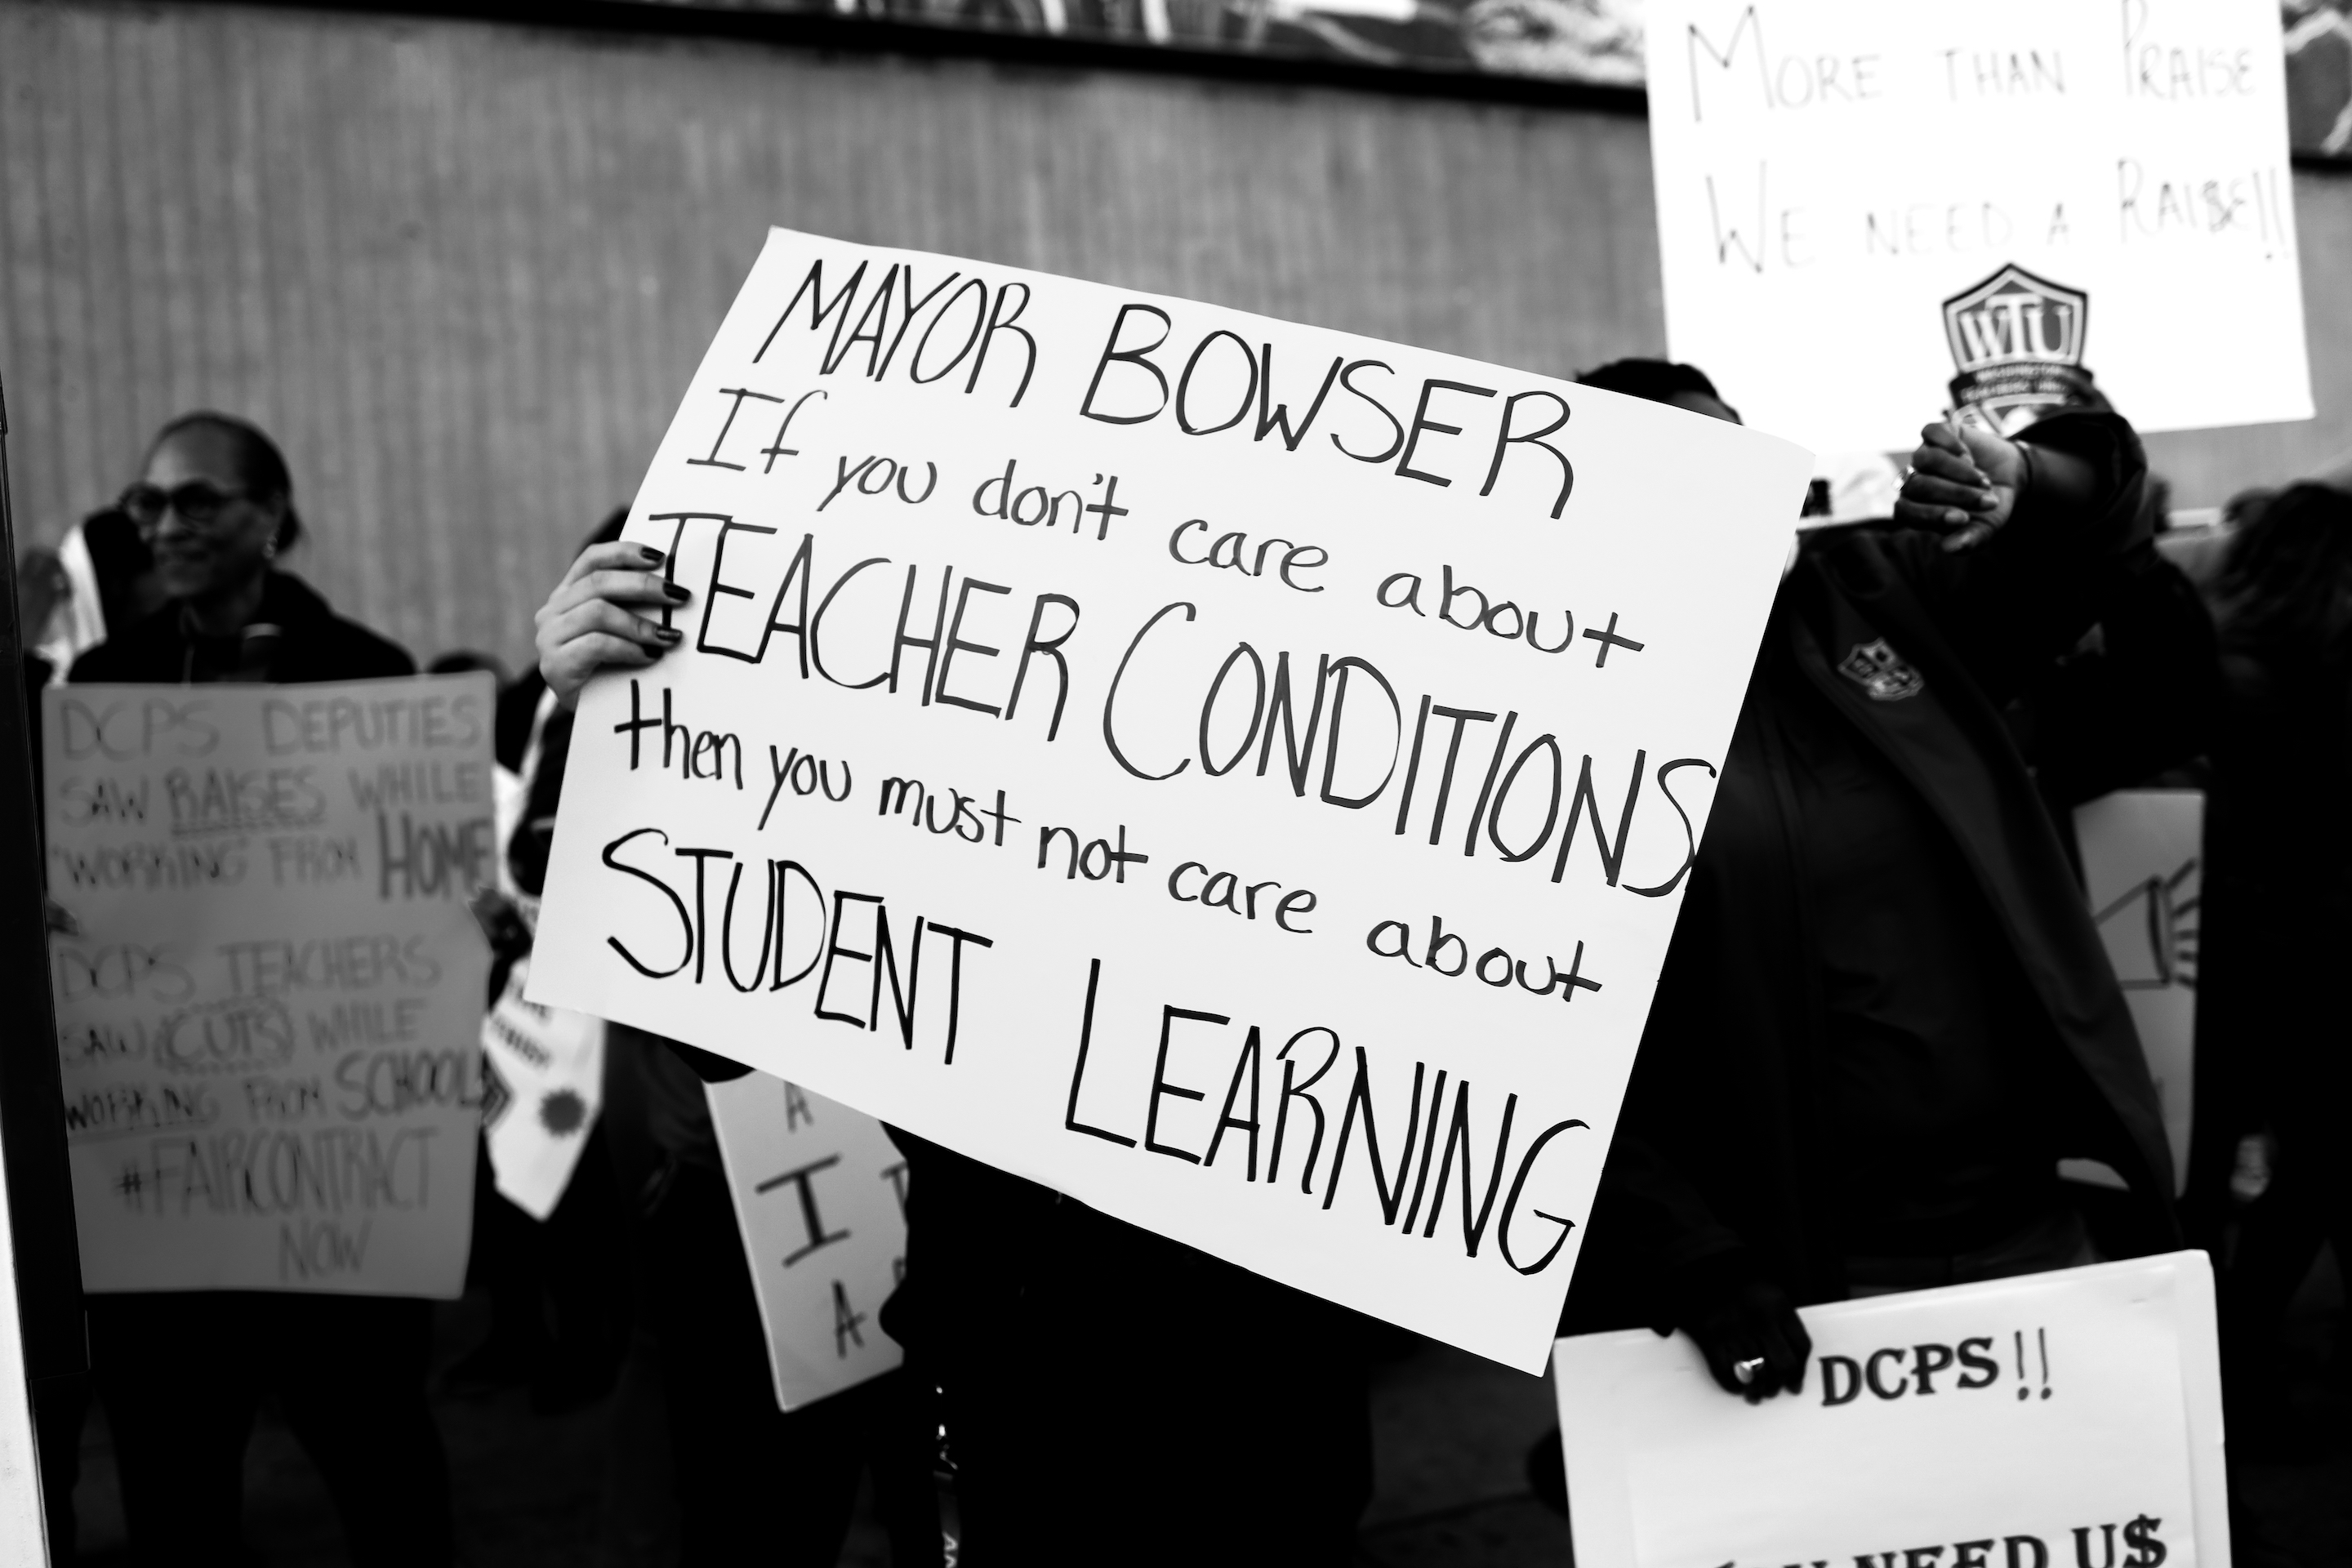 MAYOR BOWSER
If you don't care about
TEACHER CONDITIONS
then you must not care about
STUDENT LEARNING
MORE THAN PRAISE
WE NEED A RAI$E!!
WTU
WASHINGTON
DCPS DEPUTIES
SAW RAISES WHILE
WORKING FROM HOME
DCPS TEACHERS
SAW CUTS WHILE
WORKING FROM SCHOOL
#FAIRCONTRACT
NOW
A
I
A
DCPS!!
NEED U$